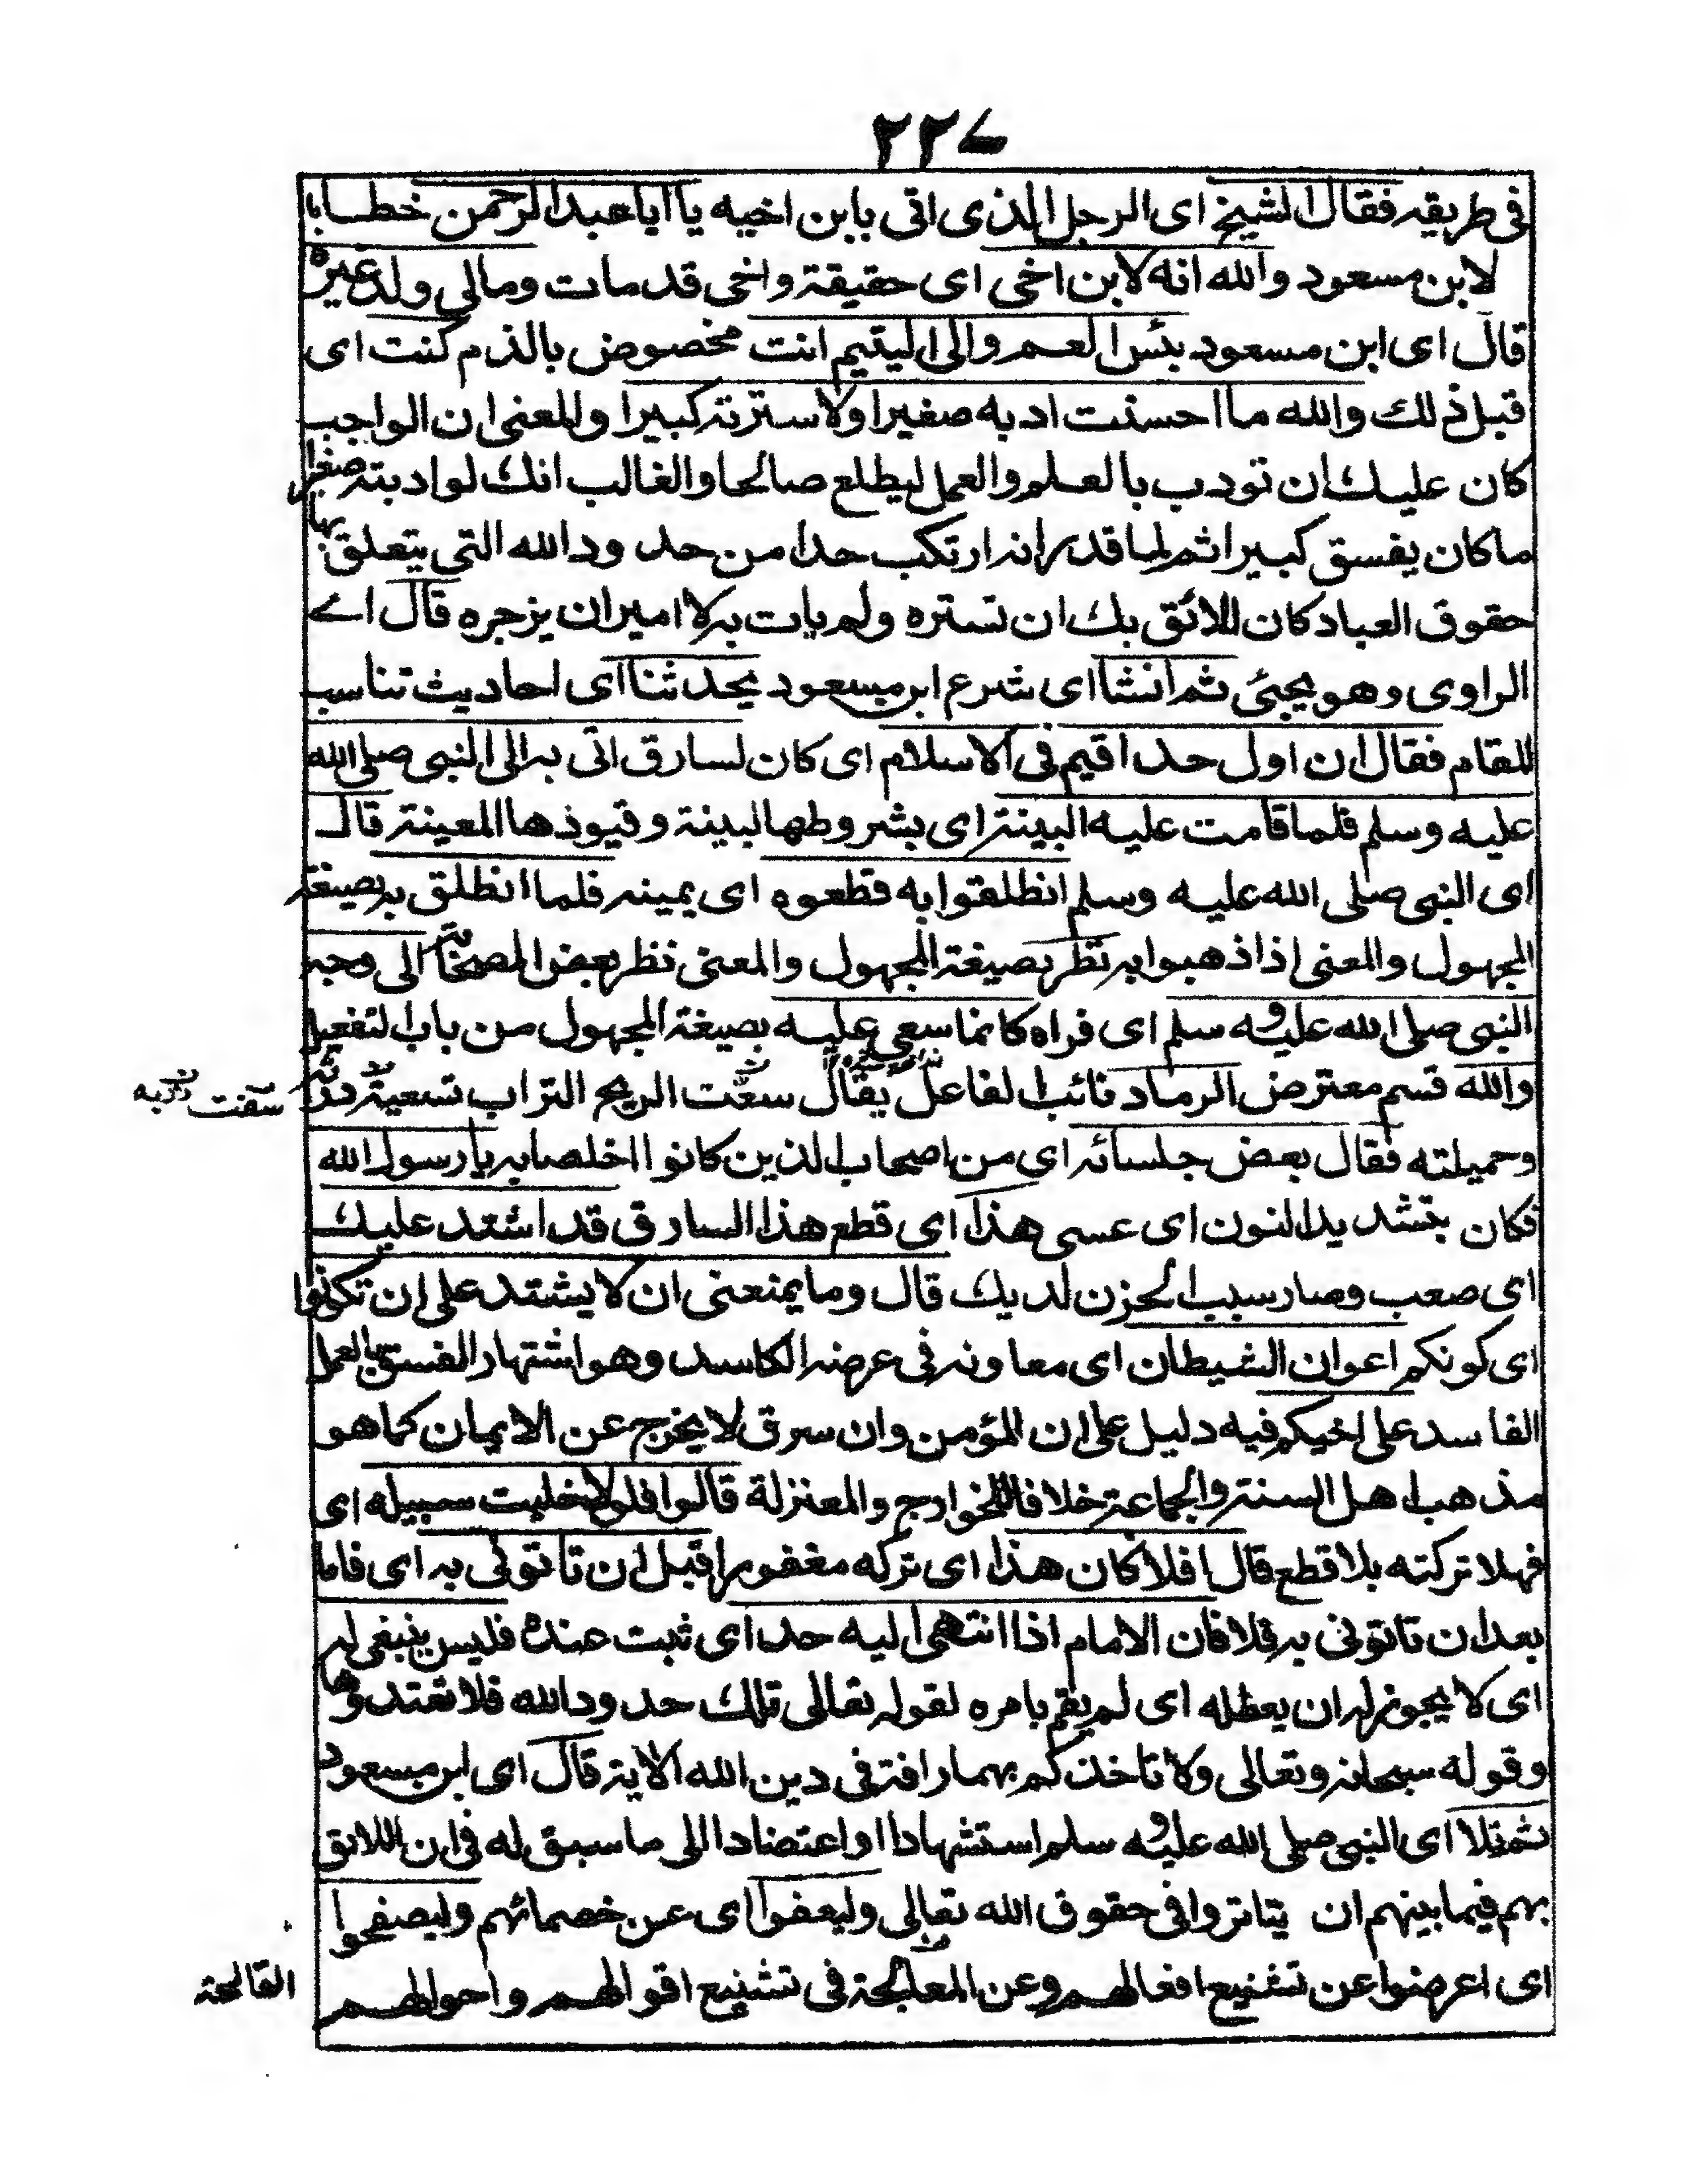 ٢٢٧
في طريقه فقال الشيخ اى الرجل الذى اتى بابن اخيه يا ابا عبد الرحمن خطابا
لابن مسعود والله انه لابن اخى اى حقيقة واخى قد مات ومالى ولد غيره
قال اى ابن مسعود بئس العم والى اليتيم انت مخصوص بالذم كنت اى
قبل ذلك والله ما احسنت ادبه صغيرا ولا سترته كبيرا والمعنى ان الواجب
كان عليك ان تودب بالعلم والعمل ليطلع صالحا والغالب انك لو ادبته صغيرا
ما كان يفسق كبيرا ثم لما قدر انه ارتكب حدا من حدود الله التى يتعلق بها
حقوق العباد كان اللائق بك ان تستره ولم يات به لامير ان يزجره قال اے
الراوى وهو يحيىٰ ثم انشا اى شرع ابن مسعود يحدثنا اى احاديث تناسب
المقام فقال ان اول حد اقيم فى الاسلام اى كان لسارق اتى به الى النبى صلى الله
عليه وسلم فلما قامت عليه البينة اى بشروطها البينة وقيودها المعينة قال
اى النبى صلى الله عليه وسلم انطلقوا به فقطعوه اى يمينه فلما انطلق به بصيغة
المجهول والمعنى اذا ذهبوا به نظر بصيغة المجهول والمعنى نظر بعض الصحابة الى وجه
النبى صلى الله عليه و سلم اى فراه كانما سعى عليه بصيغة المجهول من باب التفعيل
والله قسم معترض الرماد نائب الفاعل يقال سعت الريح التراب تسعية ذرته سفت
وحميلته فقال بعض جلسائه اى من اصحاب الذين كانوا اخلصابه يا رسول الله
فكان بتشديد النون اى عسى هذا اى قطع هذا السارق قد اشتد عليك
اى صعب وصار سبب الحزن لديك قال وما يمنعنى ان لا يشتد على ان تكونوا
اى كونكم اعوان الشيطان اى معاونه فى عرضه الكاسد وهو اشتهار الفسق بالعمل
الفاسد على اخيكم فيه دليل على ان المؤمن وان سرق لا يخرج عن الايمان كما هو
مذهب اهل السنة والجماعة خلافا للخوارج والمعنزلة قالوا فلولا خليت سبيله اى
فهلا تركته بلا قطع قال افلا كان هذا اى تركه مغفورا قبل ان تاتونى به اى فاما
بعد ان تاتونى به فلا فان الامام اذا انتهى اليه حد اى ثبت عنده فليس ينبغى له
اى لا يجوز له ان يعطله اى لم يقم بامره لقوله تعالى تلك حدود الله فلا تعتدوها
وقوله سبحانه وتعالى ولا تاخذكم بهما رافة فى دين الله الاية قال اى ابن مسعود
ثم تلا اى النبى صلى الله عليه و سلم استشهادا او اعتضادا اللى ما سبق له فى ان اللائق
بهم فيما بينهم ان يتاتروا فى حقوق الله تعالى وليعفوا اى عن خصمائهم وليصفحوا
اى اعرضوا عن تشنيع افعالهم وعن المعالجة فى تشنيع اقوالهم واحوالهم
القالحة